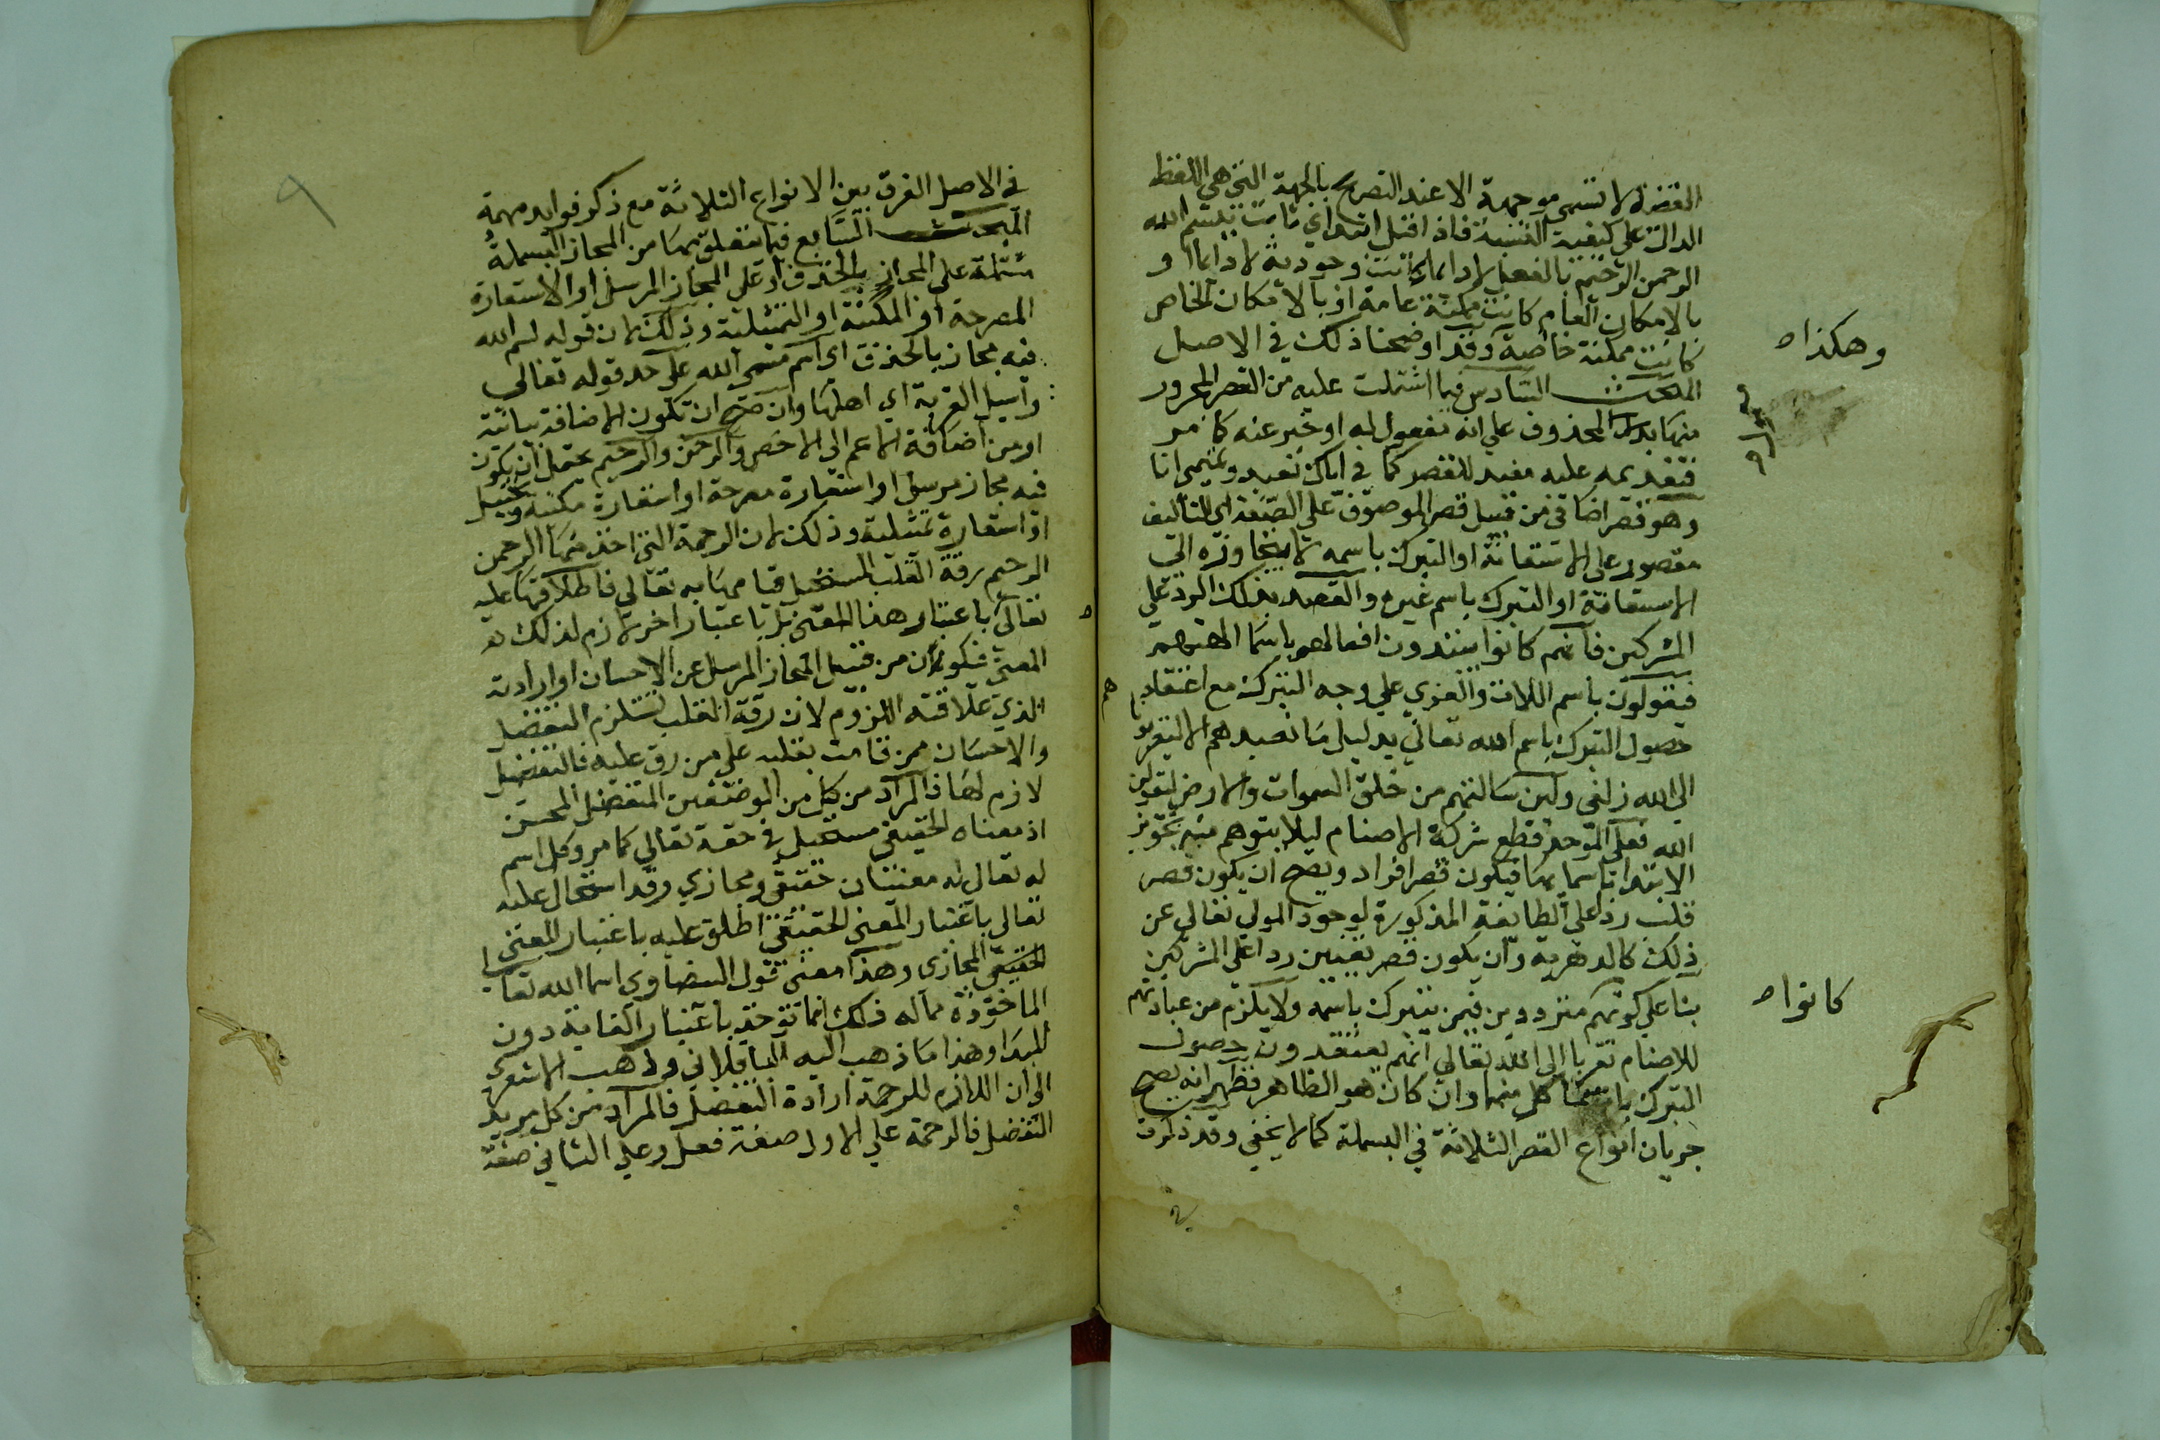 القضية لا تسمي موجهة الا عند التصريح بالجهة التي هي اللفظ
الدال علي كيفية النسبة فاذا قيل ابتداي ثابت ببسم الله
الرحمن الرحيم بالفعل لا دايما كانت وجودية لا دايما او
بالامكان العام كانت ممكنة عامة او بالامكان الخاص
كانت ممكنة خاصة وقد اوضحنا ذلك في الاصل
المبحث السادس فيما اشتملت عليه من القصر المجرور
منها بدل المحذوف علي انه مفعول له او خبر عنه كما مر
فتقديمه عليه مفيد للقصر كما في اياك نعبد وتميمي انا
وهو قصر اضافي من قبيل قصر الموصوف علي الصفة اي التاليف
مقصور علي الاستعانة او التبرك باسمه لا يتجاوزه الي
الاستعانة او التبرك باسم غيره والقصد بذلك الرد علي
المشركين فانهم كانوا يبتدون افعالهم باسما الهتهم
فيقولون باسم اللات والعزي علي وجه التبرك مع اعتقادهم
حصول التبرك باسم الله تعالي بدليل ما نعبدهم الا ليقربونا
الي الله زلفي ولين سالتهم من خلق السموات والارض ليقولن
الله فعلي الموحد قطع شركة الاصنام ليلا يتوهم منه تجويز
الابتدا باسمايها فيكون قصر افراد ويصح ان يكون قصر
قلب ردا علي الطايفة المذكورة لوجود المولي تعالي عن
ذلك كالدهرية وان يكون قصر تعيين ردا علي المشركين
بنا علي كونهم مترددين فيمن يتبرك باسمه ولا يلزم من عبادتهم
للاصنام تقربا الي الله تعالي انهم يعتقدون حصول
التبرك باسم كل منهما وان كان هو الظاهر فظهر انه يصح
جريان انواع القصر الثلاثة في البسملة كما لا يخفي وقد ذكرت
وهكذا ه
كانوا ه
٩
في الاصل الفرق بين الانواع الثلاثة مع ذكر فوايد مهمة
المبحث السابع فيما يتعلق بها من المجاز البسملة
مشتملة علي المجاز بالحذف او علي المجاز المرسل او الاستعارة
المصرحة او المكنية او التمثيلية وذلك لان قوله بسم الله
فيه مجاز بالحذف اي اسم مسمي الله علي حد قوله تعالي
واسيل القرية اي اهلها وان صح ان تكون الاضافة بيانية
او من اضافة الاعم الي الاخص والرحمن والرحيم يحتمل ان يكون
فيه مجاز مرسل او استعارة مصرحة او استعارة مكنية وتخييل
او استعارة تمثيلية وذلك لان الرحمة التي اخذ منها الرحمن
الرحيم رقة القلب المستحيل قيامها به تعالي فاطلاقها عليه
تعالي باعتبار هذا المعني بل باعتبار اخر لازم لذلك
المعني فيكونان من قبيل المجاز المرسل عن الاحسان او ارادته
الذي علاقته اللزوم لان رقة القلب تستلزم التفضل
والاحسان ممن قامت بقلبه علي من رق عليه فالتفضل
لازم لها فالمراد من كل من الوصفين المتفضل المحسن
اذ معناه الحقيقي مستحيل في حقه تعالي كما مر وكل اسم
له تعالي له معنيان حقيقي ومجازي وقد استحال عليه
تعالي باعتبار المعني الحقيقي اطلق عليه باعتبار المعني
الحقيقي المجازي وهذا معني قول البيضاوي اسما الله تعالي
الماخوذة مما له ذلك انما توخذ باعتبار الغاية دون
المبدا وهذا ما ذهب اليه الباقلاني وذهب الاشعري
الي ان اللازم للرحمة ارادة التفضل فالمراد من كل مريد
التفضل فالرحمة علي الاول صفة فعل وعلي الثاني صفة